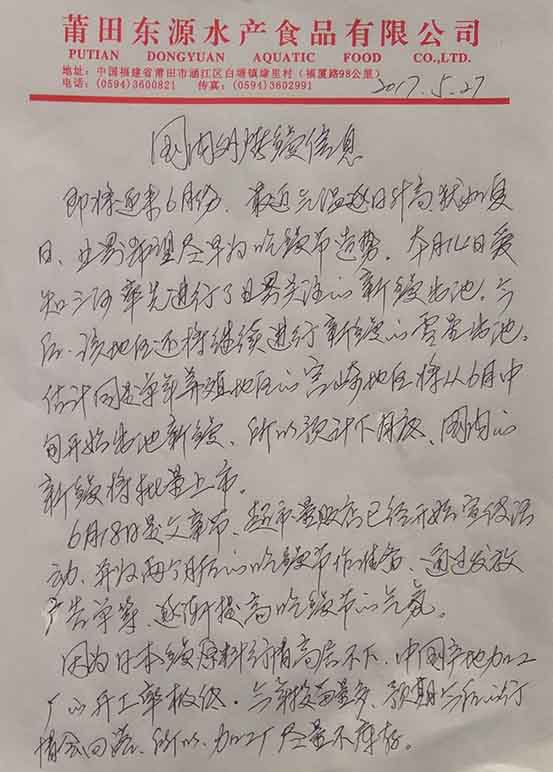 莆田东源水产食品有限公司
PUTIAN DONGYUAN AQUATIC FOOD CO.,LTD.
地址：中国福建省莆田市涵江区白塘镇埭里村（福厦路98公里）
电话：(0594)3600821 传真：(0594)3602991
2017.5.27
国内外烤鳗信息
即将迎来6月份，最近气温逐日升高，犹如夏
日，业界希望尽早为吃鳗节造势。本月14日爱
知三河率先进行了业界关注的新鳗出池。今
后，该地区还将继续进行新鳗的零星出池。
估计同是单年养殖地区的宫崎地区将从6月中
旬开始出池新鳗，所以预计下月底，国内的
新鳗将批量上市。
6月18日是父亲节，超市量贩店已经开始宣传活
动，并以两个月后的吃鳗节作准备，通过发放
广告单等，逐渐提高吃鳗节的气氛。
因为日本鳗原料行情高居不下，中国产地加工
厂的开工率极低。今年投苗量多，预期今后的行
情会回落，所以，加工厂尽量不库存。